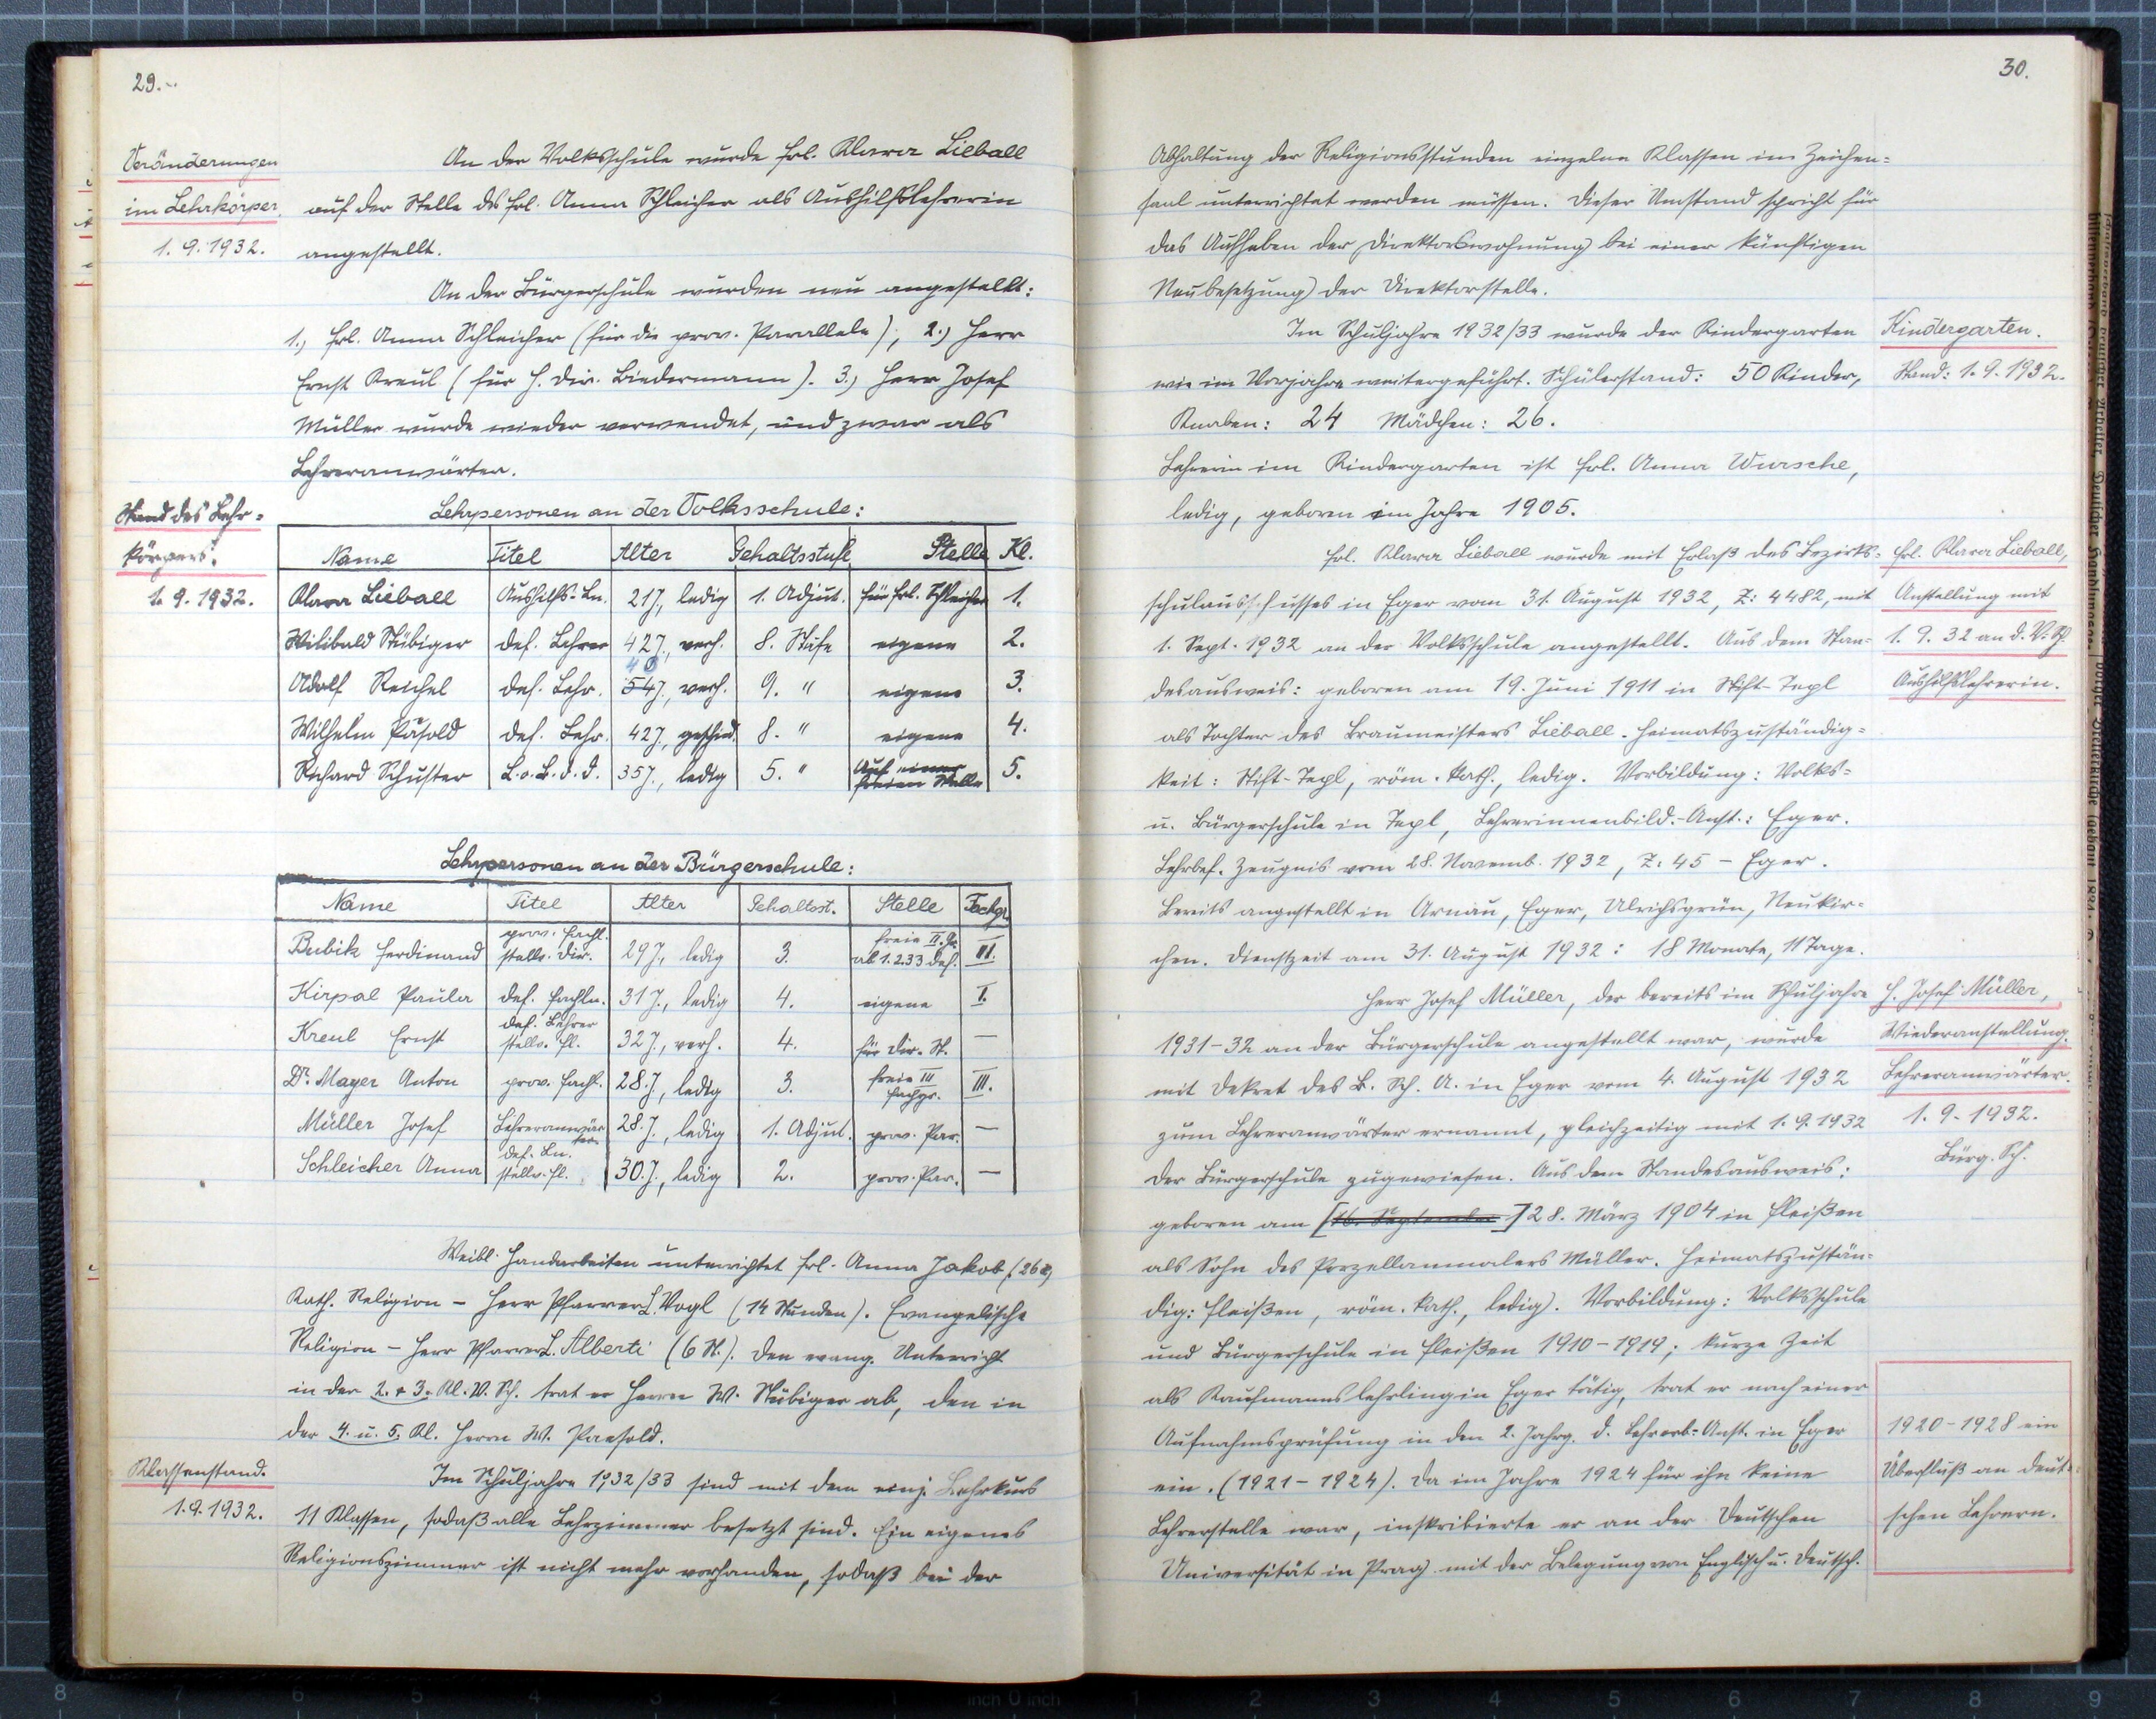 29.-
Veränderungen
im Lehrkörper.
1.9.1932.
An der Volksschule wurde Frl. Klara Lieball
auf der Stelle des Frl. Anna Schleicher als Aushilfslehrerin
angestellt.
An der Bürgerschule wurden neu angestellt:
1.) Frl. Anna Schleicher (für die prov. Parallele); 2.) Herr
Ernst Kreul (für H. Dir. Biedermann). 3.) Herr Josef
Müller wurde wieder verwendet, und zwar als
Lehreranwärter.
Stand des Lehr-
körpers:
1.9.1932.
Lehrpersonen an der Volksschule:
Name Titel Alter Gehaltsstufe Stelle Kl.
Klara Lieball Aushilfs-Ln. 21J., ledig 1. Adjut. für Frl. Schleicher 1.
Wilibald Stübiger def. Lehrer 42J., verh. 8. Stufe eigene 2.
Adolf Reichel def. Lehr. 54J., verh. 9. " eigene 3.
Wilhelm Päsold def. Lehr. 42J., geschied. 8. " eigene 4.
Richard Schuster L.o.L.d.d. 35J., ledig 5. " Auf einer freien Stelle 5.
Lehrpersonen an der Bürgerschule:
Name Titel Alter Gehaltsst. Stelle Fachgr.
Bubik Ferdinand prov. Fachl. stellv. Dir. 29J., ledig 3. freie II. Gr. ab 1.2.33 def. III.
Kirpal Paula def. Fachln. 31J., ledig 4. eigene I.
Kreul Ernst def. Lehrer stellv. Fl. 32J., verh. 4. für Dir. St. —
Dr. Mayer Anton prov. Fachl. 28.J., ledig 3. freie III Fachgr. III.
Müller Josef Lehreranwärter 28.J., ledig 1. Adjut. prov. Par. —
Schleicher Anna def. Ln. stellv. Fl. 30.J., ledig 2. prov. Par. —
Weibl. Handarbeiten unterrichtet Frl. Anna Jakob (26
Kath. Religion - Herr Pfarrer L. Vogl (14 Stunden). Evangelische
Religion - Herr Pfarrer L. Alberti (6 St.). Den evang. Unterricht
in der 2. + 3. Kl. V. Sch. trat er Herrn W. Stübiger ab, den in
der 4. u. 5. Kl. Herrn W. Paesold.
Klassenstand.
1.9.1932.
Im Schuljahre 1932/33 sind mit dem einj. Lehrkurs
11 Klassen, sodaß alle Lehrzimmer besetzt sind. Ein eigenes
Religionszimmer ist nicht mehr vorhanden, sodaß bei der
30.
Abhaltung der Religionsstunden einzelne Klassen im Zeichen-
saal unterrichtet werden müssen. Dieser Umstand spricht für
das Aufheben der Direktorswohnung bei einer künftigen
Neubesetzung der Direktorstelle.
Im Schuljahre 1932/33 wurde der Kindergarten
wie im Vorjahre weitergeführt. Schülerstand: 50 Kinder,
Knaben: 24 Mädchen: 26.
Lehrerin im Kindergarten ist Frl. Anna Wursche,
ledig, geboren im Jahre 1905.
Kindergarten.
Stand: 1.9.1932.
Frl. Klara Lieball wurde mit Erlaß des Bezirks-
schulausschusses in Eger vom 31. August 1932, Z: 4482, mit
1. Sept. 1932 an der Volksschule angestellt. Aus dem Stan-
desausweis: geboren am 19. Juni 1911 in Stift-Tepl
als Tochter des Braumeisters Lieball. Heimatszuständig-
keit: Stift-Tepl, röm. kath., ledig. Vorbildung: Volks-
u. Bürgerschule in Tepl, Lehrerinnenbild.-Anst.: Eger.
Lehrbef. Zeugnis vom 28. Novemb. 1932, Z: 45 - Eger.
Bereits angestellt in Arnau, Eger, Ulrichsgrün, Neukir-
chen. Dienstzeit am 31. August 1932: 18 Monate, 11 Tage.
Frl. Klara Lieball,
Anstellung mit
1.9.32 an d. V. Sch.
Aushilfslehrerin.
Herr Josef Müller, der bereits im Schuljahre
1931-32 an der Bürgerschule angestellt war, wurde
mit Dekret des B. Sch. A. in Eger vom 4. August 1932
zum Lehreranwärter ernannt, gleichzeitig mit 1.9.1932
der Bürgerschule zugewiesen. Aus dem Standesausweis:
geboren am [16. September] 28. März 1904 in Fleißen
als Sohn des Porzellanmalers Müller. Heimatszustän-
dig: Fleißen, röm. kath., ledig. Vorbildung: Volksschule
und Bürgerschule in Fleißen 1910-1919; kurze Zeit
als Kaufmannslehrling in Eger tätig, trat er nach einer
Aufnahmsprüfung in den 2. Jahrg. d. Lehrerb.-Anst. in Eger
ein. (1921-1924). Da im Jahre 1924 für ihn keine
Lehrerstelle war, inskribierte er an der Deutschen
Universität in Prag mit der Belegung von Englisch u. Deutsch.
H. Josef Müller,
Wiederanstellung.
Lehreranwärter.
1.9.1932.
Bürg. Sch.
1920-1928 ein
Überfluß an deut-
schen Lehrern.
8 7 6 5 4 3 2 1 inch 0 inch 1 2 3 4 5 6 7 8 9